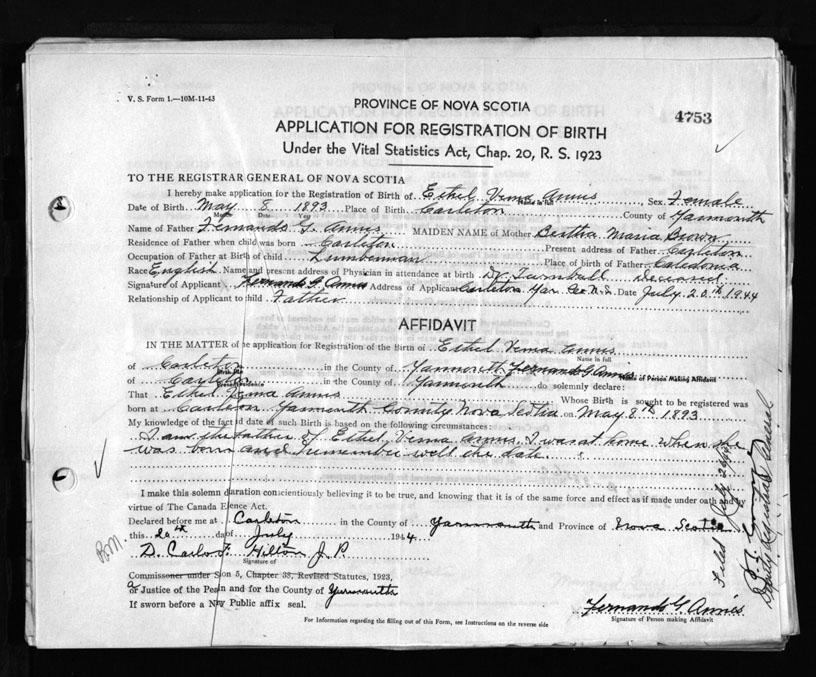 V. S. Form 1.—10M-11-43
PROVINCE OF NOVA SCOTIA
4753
APPLICATION FOR REGISTRATION OF BIRTH
Under the Vital Statistics Act, Chap. 20, R. S. 1923
TO THE REGISTRAR GENERAL OF NOVA SCOTIA
I hereby make application for the Registration of Birth of Ethel Verna Annis, Sex Female
Name in full
Date of Birth May 8 1893 Place of Birth Carleton County of Yarmouth
Date
Name of Father Fernando G. Annis MAIDEN NAME of Mother Bertha Maria Brown
Residence of Father when child was born Carleton Present address of Father Carleton
Occupation of Father at Birth of child Lumberman Place of birth of Father Caledonia
Race English Name and present address of Physician in attendance at birth Dr. Turnbull Deceased
Signature of Applicant Fernando G. Annis Address of Applicant Carleton Yar. Co. N.S. Date July 20th 1944
Relationship of Applicant to child Father
AFFIDAVIT
IN THE MATTER of he application for Registration of the Birth of Ethel Verna Annis
Name in full
of Carleton in the County of Yarmouth Fernando G Annis
Name of Person Making Affidavit
of Carleton in the County of Yarmouth do solemnly declare:
That Ethel Verna Annis Whose Birth is sought to be registered was
born at Carleton Yarmouth County Nova Scotia on May 8th 1893
My knowledge of the fact and date of such Birth is based on the following circumstances:
I am the father of Ethel Verna Annis. I was at home when she
was born and remember well the date.
I make this solemn daration conscientiously believing it to be true, and knowing that it is of the same force and effect as if made under oath and by
virtue of The Canada Evidence Act.
Declared before me at Carleton in the County of Yarmouth and Province of Nova Scotia
this 20th day of July 1944
D. Carlo F. Hilton J. P
Signature of
Commissioner under Section 5, Chapter 38, Revised Statutes, 1923,
or Justice of the Peace in and for the County of Yarmouth
If sworn before a Notary Public affix seal.
Fernando G Annis
Signature of Person making Affidavit
For Information regarding the filling out of this Form, see Instructions on the reverse side
Filed July 26/44
Deputy Registrar General